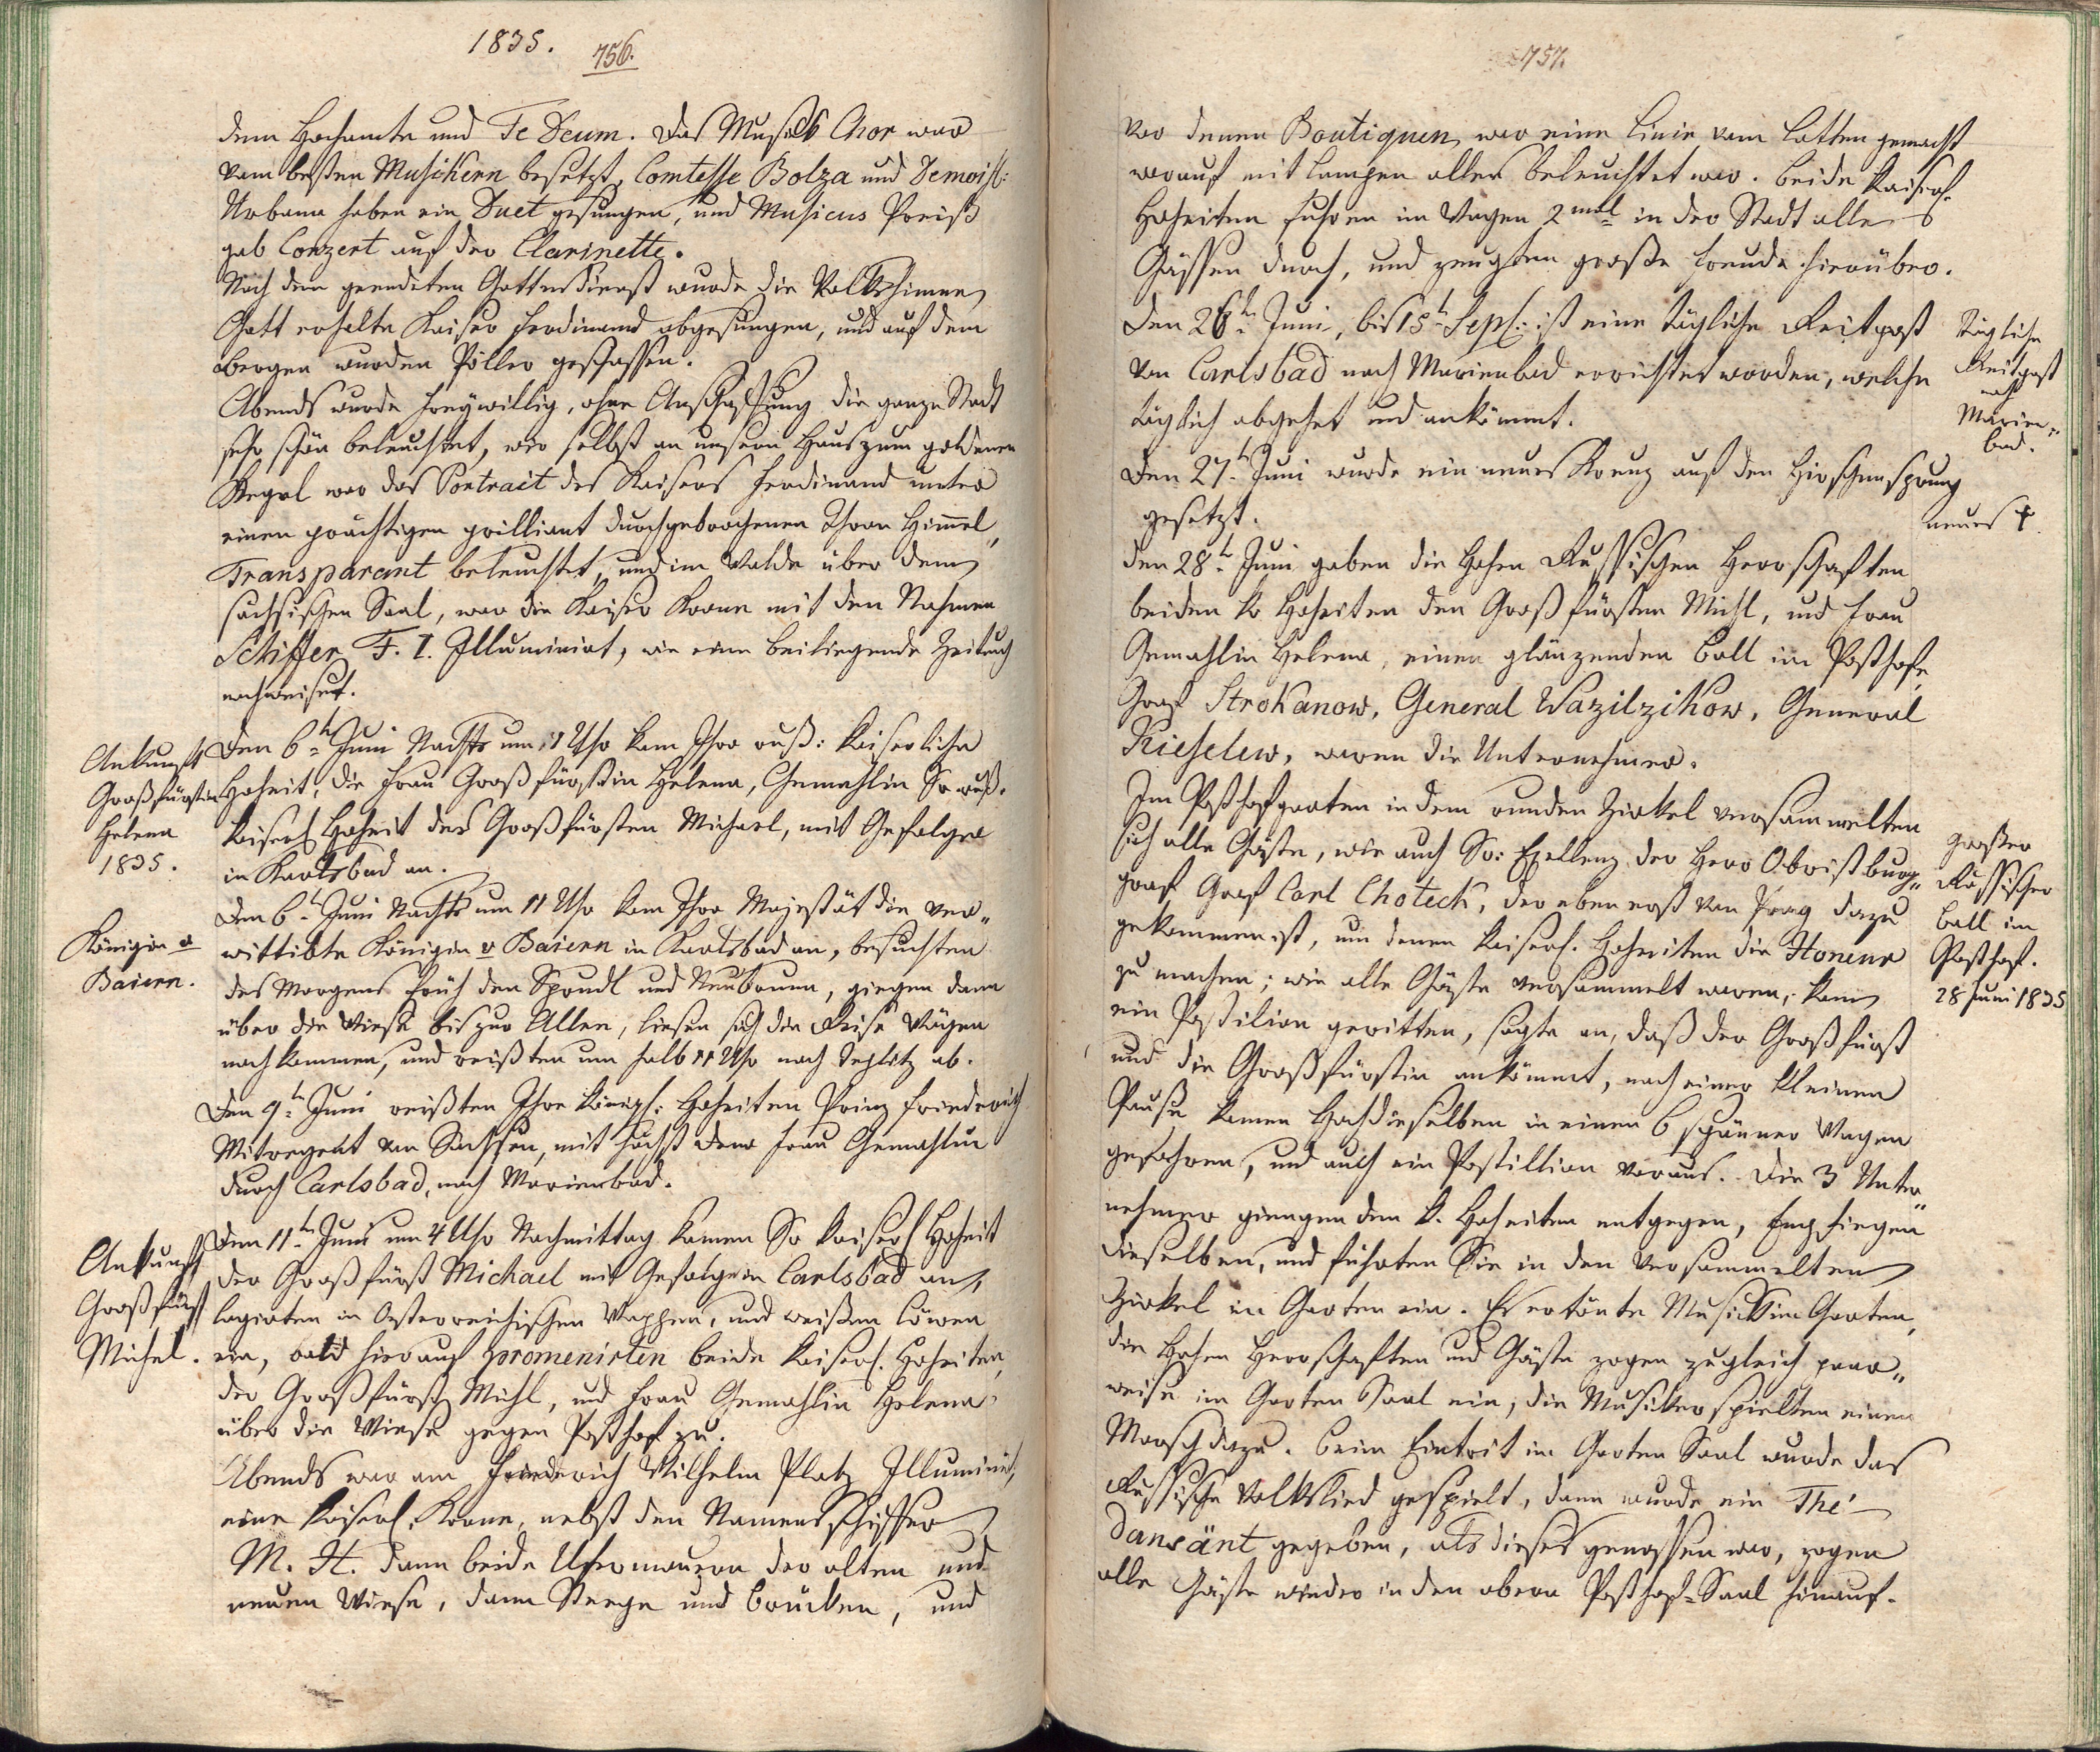 1835.
756.
dem Hochamte und Te Deum. Das Musick Chor war
vom besten Musickern besetzt, Comtesse Bolza und Demoisl:
Urbann haben ein Duet gesungen, und Musicus Preiß
gab Conzert auf der Clarinette.
Nach dem geendeten Gottesdienst wurde die Volkshimne
Gott erhalte Kaiser Ferdinand abgesungen, und auf dem
bergen wurden Pöller geschossen.
Abends wurde freÿwillig, ohne Anschaffung die ganze Stadt
sehr schön beleuchtet, wie selbst an unsern Haus zum goldenen
Kegel war das Portrait des Kaisers Ferdinand unter
einen prächtigen prilliant durchgebrochenen Thron Himmel,
Transparent beleuchtet, und im Walde über dem
sächsischen Saal, war die Kaiser Krone mit den Nahmen
Schiffer F. I. Illuminirt, wie eine beiliegende Zeitung
nachweiset.
Ankunft
Großfürstin
Helena
1835.
Den 6tn Juni Nachts um 11 Uhr kam Ihre ruß: Kaiserliche
Hoheit, die Frau Großfürstin Helena, Gemahlin Sr ruß.
kaiserl Hoheit des Großfürsten Michael, mit Gefolge
in Karlsbad an.
Königin v
Baiern.
Den 6t Juni Nachts um 11 Uhr kam Ihre Majestät die ver„
wittibte Königin v Baiern in Karlsbad an, besuchten
des Morgens früh den Sprudl und Neubrunn, giegen dann
über die Wiese bis zur Allee, liesen sich die Reise Wägen
nachkommen, und reißten um halb 11 Uhr nach Teplitz ab.
Den 9tn Juni reißten Ihre königl: Hoheiten Prinz Friederich
Mitregent von Sachsen, mit höchst dero Frau Gemahlin
durch Carlsbad, nach Marienbad.
Ankunft
Großfürst
Michel.
Den 11tn Juni um 4 Uhr Nachmittag kamen Sr kaiserl Hoheit
der Großfürst Michael mit Gefolge in Carlsbad an,
logirten in Österreichischen Wappen, und weißen Löwen
ein, bald hierauf promenirten beide kaiserl. Hoheiten,
der Großfürst Michl, und Frau Gemahlin Helena
über die Wiese gegen Posthof zu.
Abends war am Friederich Wilhelm Platz Illuminirt,
eine kaiserl. Krone, nebst den Namens schiffer
M. H. dann beide Ufermauern der alten und
neuen Wiese, dann Steege und brücken, und
757.
vor denen Boutiquen, war eine Linie vom Latten gemacht
worauf mit Lampen alles beleuchtet war. beide Kaiserl.
Hoheiten fuhren im Wagen 2mal in der Stadt alle
Gässen durch, und zeugten große Freude hierüber.
Den 26tn Juni, bis 15t Sept: ist eine tägliche Reitpost
von Carlsbad nach Marienbad errichtet worden, welche
täglich abgehet und ankömmt.
Tägliche
Reitpost
nach
Marien„
bad.
Den 27t Juni wurde ein neues Kreuz auf den Hirschensprung
gesetzt.
neues †
Den 28t Juni gaben die Hohen Russischen Herrschaften
beiden k Hoheiten den Großfürsten Michl, und Frau
Gemahlin Helena, einen glänzenden Ball im Posthofe,
Graf Strokanow, General Wazilzikow, General
Kieselew, waren die Unternehmer.
Im Posthofgarten in dem runden Zirkel versammelten
sich alle Gäste, wie auch Sr: Exellenz der Herr Obristburg„
graf Graf Carl Choteck, der eben erst von Prag dazu
gekommen ist, um denen kaiserl. Hoheiten die Honeur
zu machen; wie alle Gäste versammelt waren, kam
ein Postilion geritten, sagte an, daß der Großfürst
und die Großfürstin ankömmt, nach einer kleinen
Pause kamen Hochdieselben in einen 6 spänner Wagen
gefahren, und auch ein Postillion voraus. Die 3 Unter„
nehmer giengen dem k. Hoheiten entgegen, Empfiegen
dieselben, und führten Sie in den versammelten
Zirkel in Garten ein. Es ertönte Musick im Garten,
die Hohen Herrschaften und Gäste zogen zugleich paar„
weise im Garten Saal ein, die Musiker spielten einen
Marsch dazu. beim Eintrit im Garten Saal wurde das
Russische Volkslied gespielt, dann wurde ein Thé
dansänt gegeben, als dieses genossen war, zogen
alle Gäste wieder in den obern Posthof-Saal hinauf.
großer
Russischer
ball im
Posthof.
28 Juni 1835